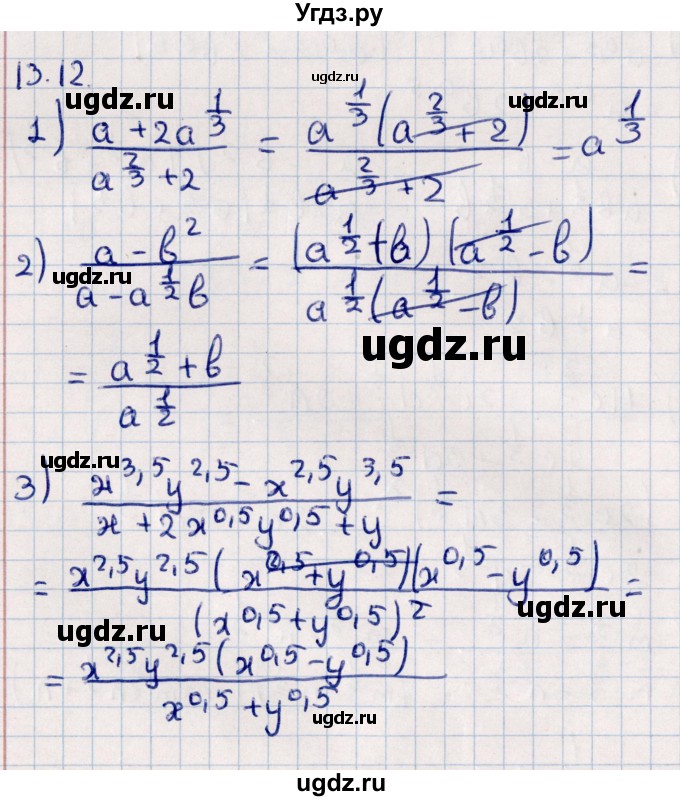 Угдз.ру
13.12.
ugdz.ru
ugdz.ru
1) (a + 2a^(1/3))/(a^(2/3) + 2) = (a^(1/3)(a^(2/3) + 2))/(a^(2/3) + 2) = a^(1/3)
2) (a - в²)/(a - a^(1/2)в) = ((a^(1/2) + в)(a^(1/2) - в))/(a^(1/2)(a^(1/2) - в)) =
ugdz.ru
ugdz.ru
= (a^(1/2) + в)/(a^(1/2))
ugdz.ru
3) (x^3,5 y^2,5 - x^2,5 y^3,5)/(x + 2x^0,5 y^0,5 + y) =
= (x^2,5 y^2,5 (x^0,5 + y^0,5)(x^0,5 - y^0,5))/((x^0,5 + y^0,5)²) =
ugdz.ru
ugdz.ru
= (x^2,5 y^2,5 (x^0,5 - y^0,5))/(x^0,5 + y^0,5)
ugdz.ru
ugdz.ru